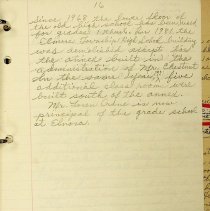 16
Since 1968 the lower floor of
the old high school has been used
for grades 1 through
Elnora Township High School building
was demolished except for
the annex built in the
administration of Mr. Chesnut
on the same five
additional class rooms were
built south of the annex.
Mr. Loren Arine is now
principal of the grade school
at Elnora.